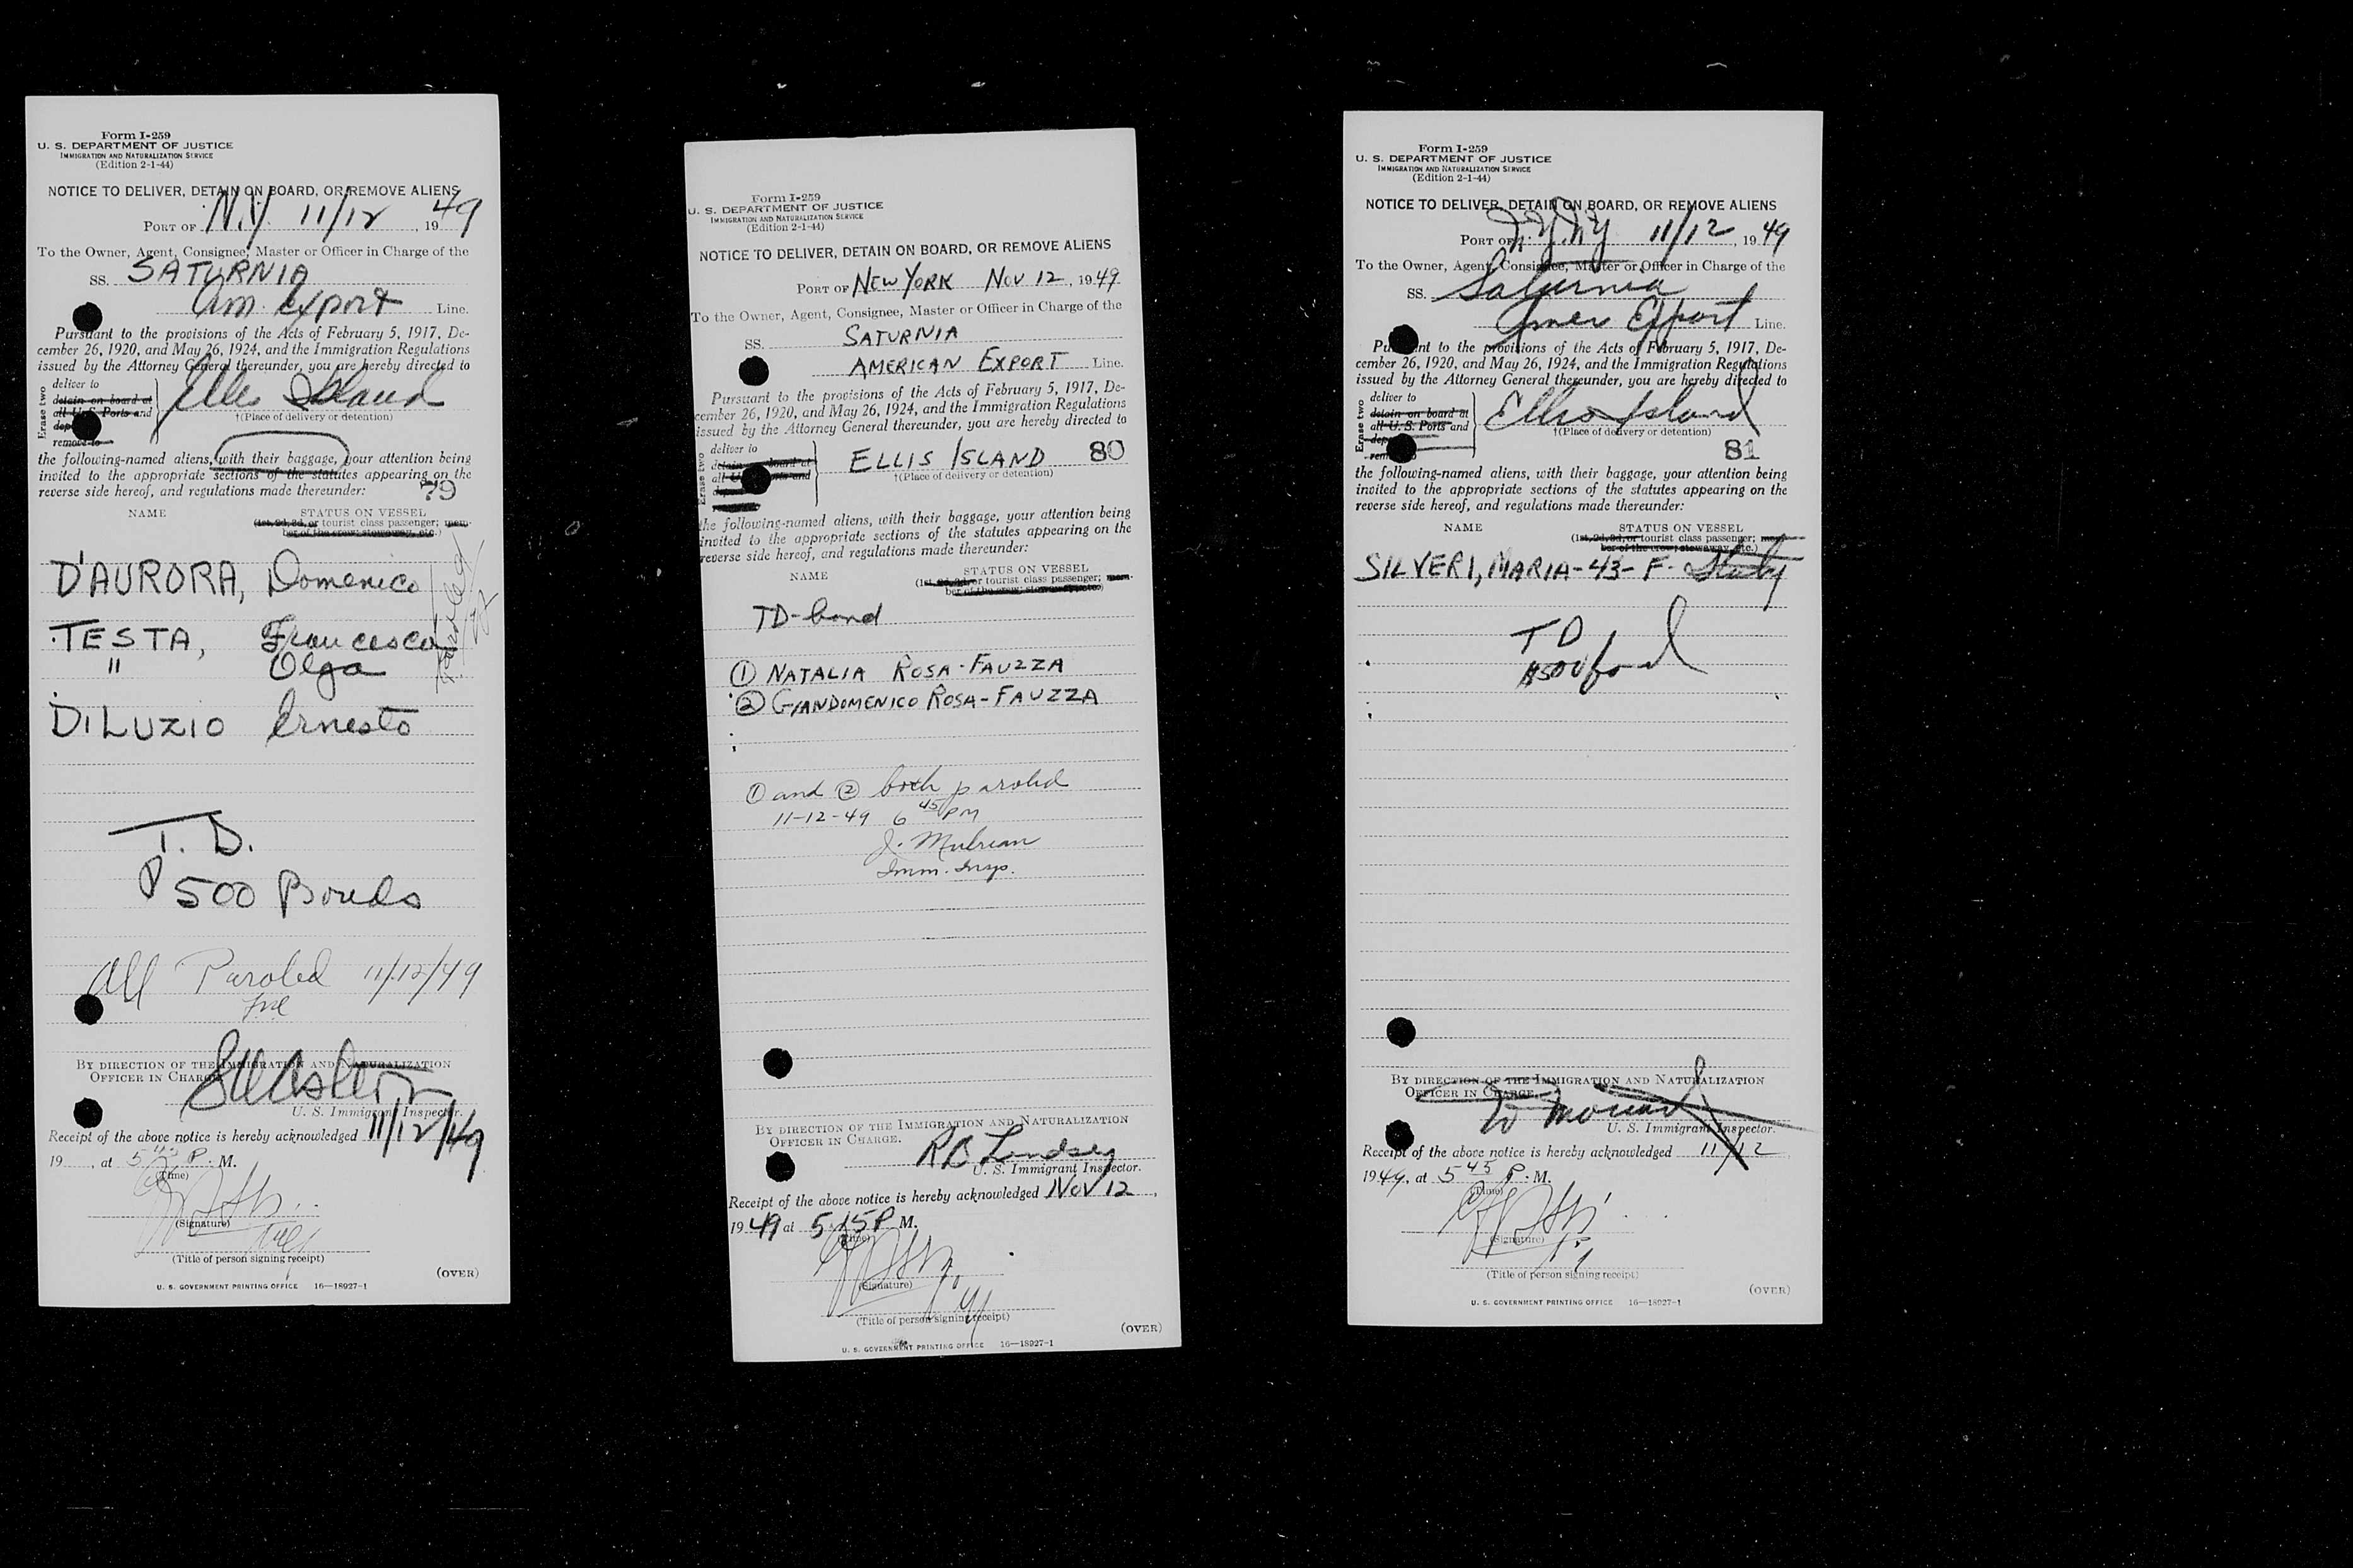 Form I-259
U. S. DEPARTMENT OF JUSTICE
IMMIGRATION AND NATURALIZATION SERVICE
(Edition 2-1-44)
NOTICE TO DELIVER, DETAIN ON BOARD, OR REMOVE ALIENS
PORT OF N.Y. 11/12, 1949
To the Owner, Agent, Consignee, Master or Officer in Charge of the
SS. SATURNIA
Am. Export Line.
Pursuant to the provisions of the Acts of February 5, 1917, De-
cember 26, 1920, and May 26, 1924, and the Immigration Regulations
issued by the Attorney General thereunder, you are hereby directed to
Erase two
deliver to
detain on board at
all U. S. Ports and
remove to
Ellis Island
†(Place of delivery or detention)
the following-named aliens, with their baggage, your attention being
invited to the appropriate sections of the statutes appearing on the
reverse side hereof, and regulations made thereunder:
79
NAME STATUS ON VESSEL
(1st, 2d, 3d, or tourist class passenger; mem-
ber of the crew; stowaway, etc.)
D'AURORA, Domenico
TESTA, Francesca
" Olga
DILUZIO Ernesto
T. D.
500 Bonds
All Paroled 11/12/49
BY DIRECTION OF THE IMMIGRATION AND NATURALIZATION
OFFICER IN CHARGE.
U. S. Immigrant Inspector.
Receipt of the above notice is hereby acknowledged 11/12/49
19 , at 5 P. M.
(Time)
(Signature)
(Title of person signing receipt)
(OVER)
U. S. GOVERNMENT PRINTING OFFICE 16—18927-1
Form I-259
U. S. DEPARTMENT OF JUSTICE
IMMIGRATION AND NATURALIZATION SERVICE
(Edition 2-1-44)
NOTICE TO DELIVER, DETAIN ON BOARD, OR REMOVE ALIENS
PORT OF NEW YORK NOV 12, 1949
To the Owner, Agent, Consignee, Master or Officer in Charge of the
SS. SATURNIA
AMERICAN EXPORT Line.
Pursuant to the provisions of the Acts of February 5, 1917, De-
cember 26, 1920, and May 26, 1924, and the Immigration Regulations
issued by the Attorney General thereunder, you are hereby directed to
Erase two
deliver to
detain on board at
all U. S. Ports and
ELLIS ISLAND 80
†(Place of delivery or detention)
the following-named aliens, with their baggage, your attention being
invited to the appropriate sections of the statutes appearing on the
reverse side hereof, and regulations made thereunder:
NAME STATUS ON VESSEL
(1st, 2d, 3d, or tourist class passenger; mem-
ber of the crew; stowaway, etc.)
TD-bond
① NATALIA ROSA-FAUZZA
② GIANDOMENICO ROSA-FAUZZA
① and ② both paroled
11-12-49 6 45 PM
J. Mulrean
Imm. Insp.
BY DIRECTION OF THE IMMIGRATION AND NATURALIZATION
OFFICER IN CHARGE.
R B Lindsey
U. S. Immigrant Inspector.
Receipt of the above notice is hereby acknowledged NOV 12,
1949 at 5:15 P M.
(Time)
(Signature)
(Title of person signing receipt)
(OVER)
U. S. GOVERNMENT PRINTING OFFICE 16—18927-1
Form I-259
U. S. DEPARTMENT OF JUSTICE
IMMIGRATION AND NATURALIZATION SERVICE
(Edition 2-1-44)
NOTICE TO DELIVER, DETAIN ON BOARD, OR REMOVE ALIENS
PORT OF 11/12, 1949
To the Owner, Agent, Consignee, Master or Officer in Charge of the
SS. Saturnia
Amer Export Line.
Pursuant to the provisions of the Acts of February 5, 1917, De-
cember 26, 1920, and May 26, 1924, and the Immigration Regulations
issued by the Attorney General thereunder, you are hereby directed to
Erase two
deliver to
detain on board at
all U. S. Ports and
Ellis Island
†(Place of delivery or detention)
81
the following-named aliens, with their baggage, your attention being
invited to the appropriate sections of the statutes appearing on the
reverse side hereof, and regulations made thereunder:
NAME STATUS ON VESSEL
(1st, 2d, 3d, or tourist class passenger; mem-
ber of the crew; stowaway, etc.)
SILVERI, MARIA-43-F-
TD
$500 bond
BY DIRECTION OF THE IMMIGRATION AND NATURALIZATION
OFFICER IN CHARGE.
U. S. Immigrant Inspector.
Receipt of the above notice is hereby acknowledged 11/12
1949, at 5 45 P. M.
(Time)
(Signature)
(Title of person signing receipt)
(OVER)
U. S. GOVERNMENT PRINTING OFFICE 16—18927-1